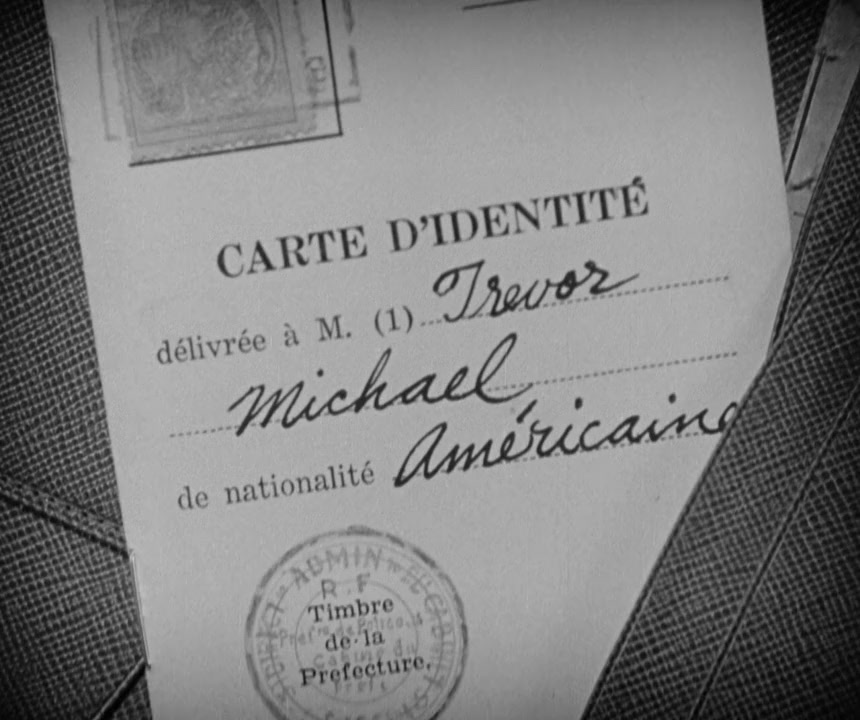 CARTE D'IDENTITÉ
délivrée à M. (1) Trevor
Michael
de nationalité Américaine
ADMIN
R.F
Timbre
de la
Prefecture.